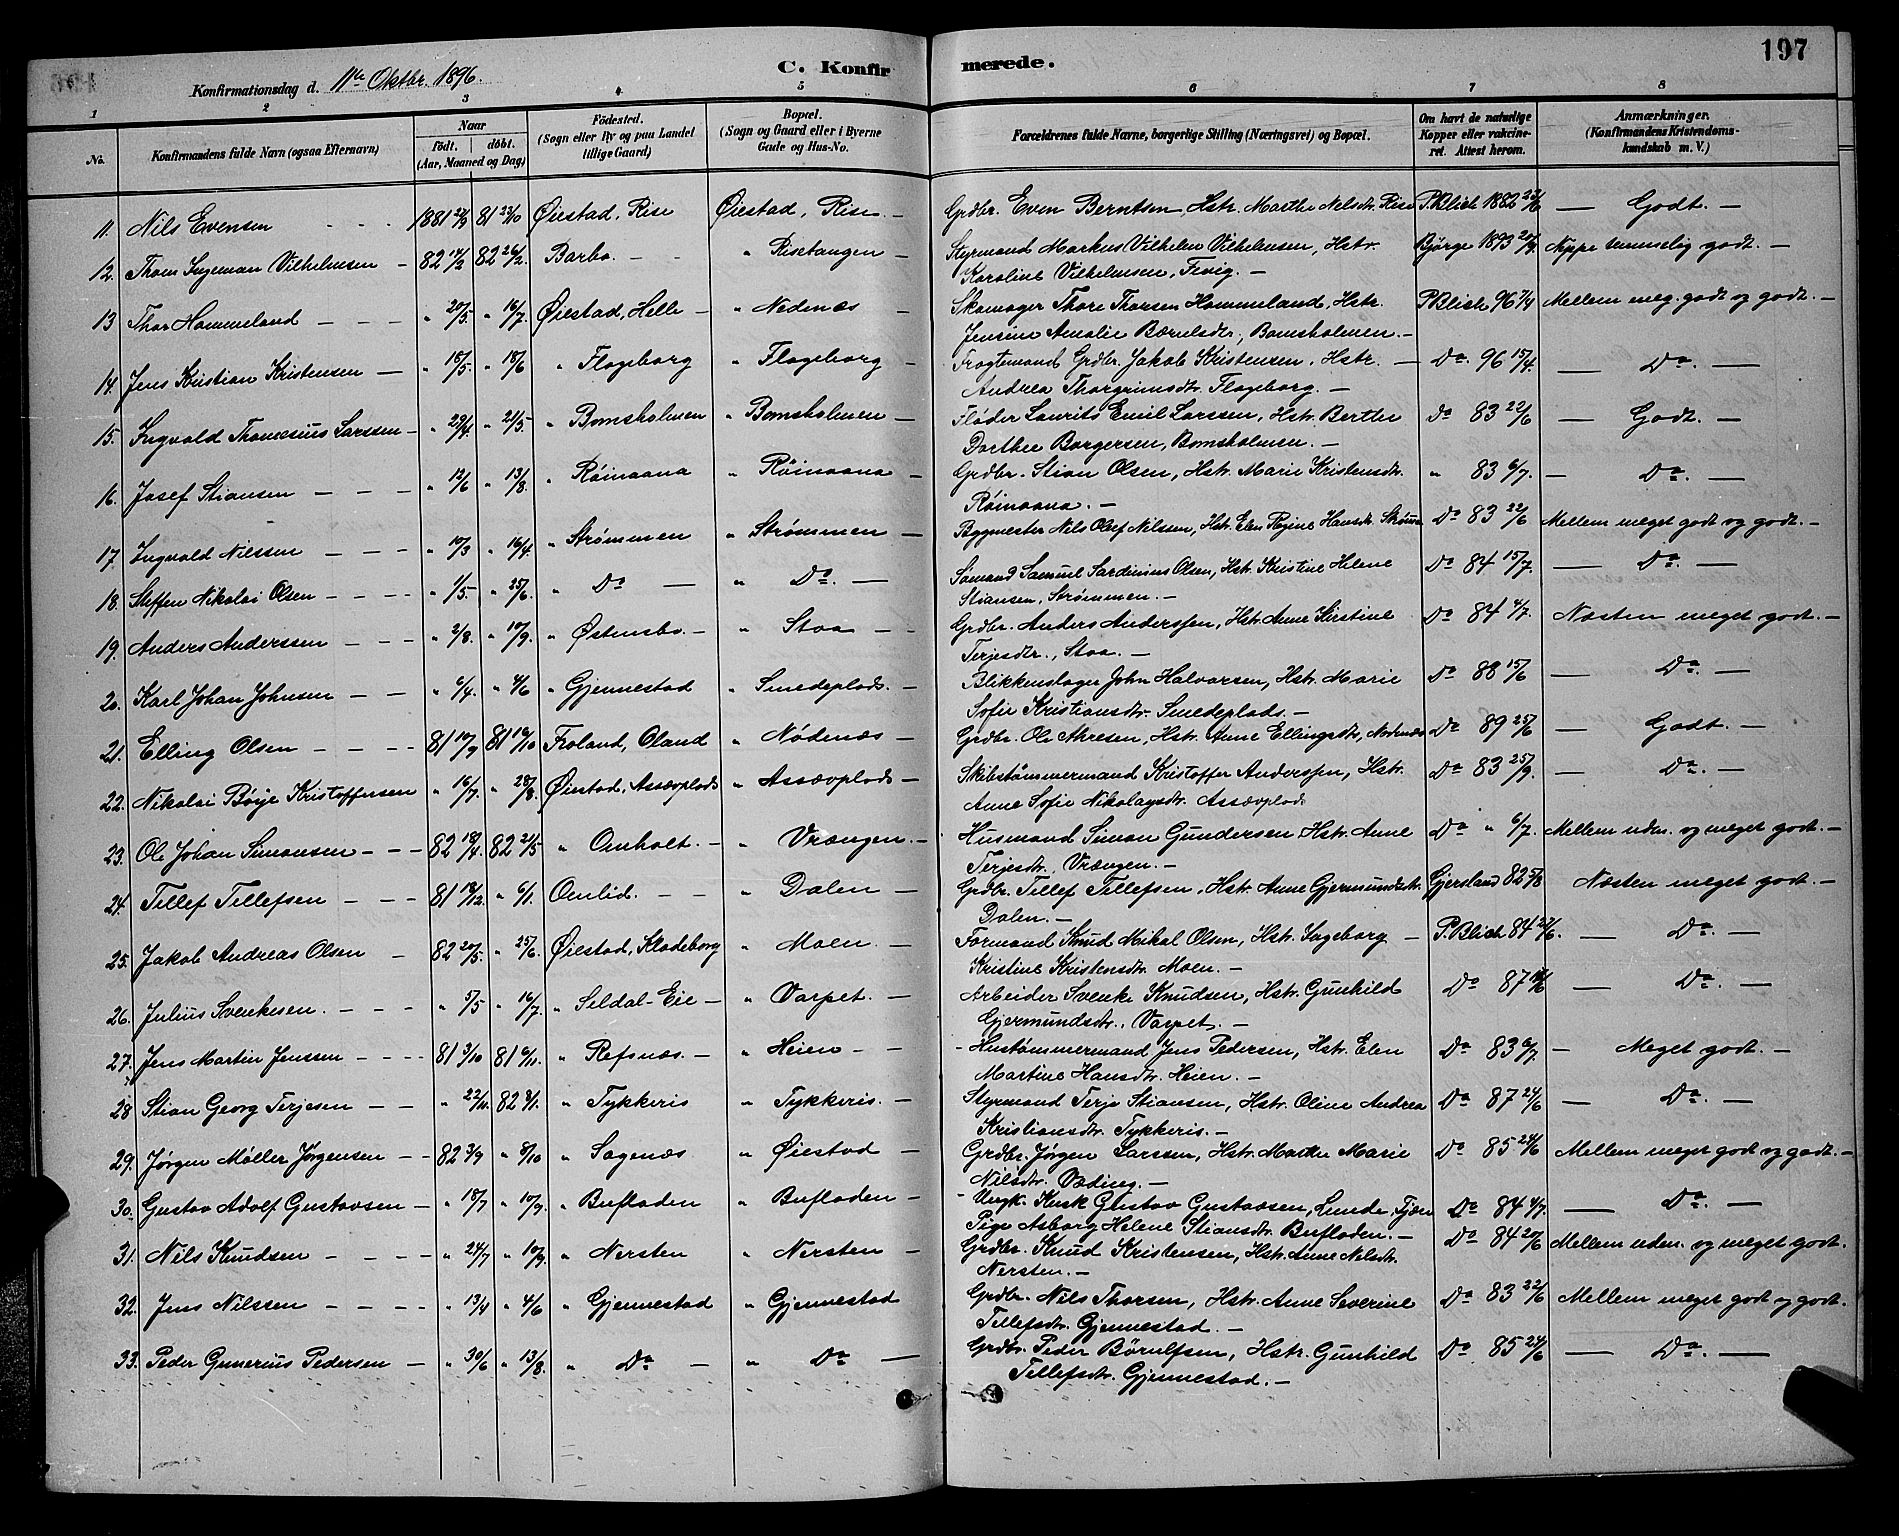 197
Konfirmationsdag d. 11te Oktbr. 1896.
C. Konfirmerede.
1 2 3 4 5 6 7 8
No.
Konfirmandens fulde Navn (ogsaa Efternavn)
Naar
født. døbt.
(Aar, Maaned og Dag)
Fødested.
(Sogn eller By og paa Landet
tillige Gaard)
Bopæl.
(Sogn og Gaard eller i Byerne
Gade og Hus-No.
Forældrenes fulde Navne, borgerlige Stilling (Næringsvei) og Bopæl.
Om havt de naturlige
Kopper eller vakcine-
ret. Attest herom.
Anmærkninger.
(Konfirmandens Kristendoms-
kundskab m. V.)
11. Nils Evensen 1881 81 23/10 Øiestad, Rise Øiestad, Rise Grdbr. Even Berntsen, Hstr. Marthe Nelsdtr. Rise P. Blich 1882 Godt.
12. Thom Ingeman Vilhelmsen 82 82 26/2 Barbo. " Risetangen Styrmand Markus Vilhelm Vilhelmsen, Hstr. Bjørge 1893 Neppe temmelig godt.
Karoline Vilhelmsen, Fevig.
13 Thor Hommeland " 20/5. " 16/7. Øiestad, Helle " Nedenæs Skomager Thore Thorsen Hommeland, Hstr. P. Blich 96 7/4 Mellem meg. godt og godt.
Jensine Amalie Bærulsdtr., Bomsholmen.
14. Jens Kristian Kristensen " 15/5. " 18/6 " Flageborg " Flageborg Fragtemand Grdbr. Jakob Kristensen, Hstr. Do. 96 15/4. Do.
Andrea Thorgrimsdtr. Flageborg.
15. Ingvald Thomesius Larssen " 29/4. " 21/5. " Bomsholmen " Bomsholmen Fløder Laurits Emil Larssen, Hstr. Berthe Do 83 22/6 Godt.
Dorthee Borgersen, Bomsholmen.
16. Josef Stiansen " 12/6 " 13/8. " Røinaana " Røinaana Grdbr. Stian Olsen, Hstr. Marie Kristensdtr. " 83 6/7. Do.
Røinaana.
17 Ingvald Nilssen " 10/3 " 16/4. " Strømmen " Strømmen Bygmester Nils Olsef Nilssen, Hstr. Elen Regine Hansdtr. Strømm Do 83 22/6 Mellem meget godt og godt.
18. Steffen Nikolai Olsen " 1/5. " 25/6. " Do " Do. Sømand Samuel Sardinius Olsen, Hstr. Kristine Helene Do 84 15/7. Do.
Stiansen, Strømmen.
19. Anders Anderssen " 2/8. " 10/9. " Østensbo. " Stoa Grdbr. Anders Anderssen, Hstr. Anne Kirstine Do 84 4/7. Næsten meget godt.
Terjesdtr., Stoa.
20. Karl Johan Johnsen " 6/4. " 4/6 " Gjennestad " Smedeplads. Blikkenslager John Halvorsen, Hstr. Marie Do 88 15/6 Do.
Sofie Kristiansdtr. Smedeplads.
21. Elling Olsen 81 10/9 81 Froland, Oland " Nødenæs Grdbr. Ole Akresen, Hstr. Anne Ellingsdtr, Nødenæs Do 89 25/6 Godt.
22. Nikolai Børje Kristoffersen " 16/7. " 28/8. Øiestad, Assævplads " Assævplads Skibstømmermand Kristoffer Anderssen, Hstr. Do 83 25/9. Do.
Anne Sofie Nikolaysdtr. Assævplads
23. Ole Johan Simonsen 82 18/4. 82 21/5 " Omholt. " Vrængen. Husmand Simon Gundersen Hstr. Anne Do " 6/7. Mellem uden. og meget godt.
Terjesdtr., Vrængen.
24. Tellef Tellefsen 81 18/12. " 6/1. Omlid. " Dalen Grdbr. Tellef Tellefsen, Hstr. Anne Gjermundsdtr. Gjersland 82 Næsten meget godt.
Dalen.
25. Jakob Andreas Olsen 82 20/5. " 25/6. Øiestad, Klodeborg " Moen. Formand Knud Mikal Olsen, Hstr. Ingeborg P. Blich 84 Do.
Kristine Kristensdtr. Moen.
26. Julius Svenkesen. " 5/5 " 16/7. " Seldal-Eie " Varpet. Arbeider Svenke Knudsen, Hstr. Gunhild Do 87 Do.
Gjermundsdtr., Varpet.
27. Jens Martin Jenssen 81 3/10 81 6/11. " Refsnæs. " Heien Hustømmermand Jens Pedersen, Hstr. Elen Do 83 6/7 Meget godt.
Martine Hansdtr. Heien.
28 Stian Georg Terjesen " 22/11. 82 8/1. " Tykkeris " Tykkeris. Styrmand Terje Stiansen, Hstr. Oline Andrea Do 87 24/6 Do.
Kristiansdtr. Tykkeris.
29. Jørgen Møller Jørgensen 82 3/9 " 8/10 " Sagenæs " Øiestad Grdbr. Jørgen Larssen, Hstr. Marthe Marie Do 85 24/6 Mellem meget godt og godt.
Nilsdtr. Væding.
30. Gustav Adolf Gustavsen " 18/7 " 10/9. " Bufladen " Bufladen Ungk. Kusk Gustav Gustavsen, Lunde, Tjen Do 84 4/7. Do.
Pige Asborg Helene Stiansdtr. Bufladen.
31. Nils Knudsen " 24/7 " 10/9. " Nersten " Nersten Grdbr. Knud Kristensen, Hstr. Anne Nelsdtr. Do 84 20/6 Mellem uden. og meget godt.
Nersten.
32. Jens Nilssen " 13/4 " 4/6 " Gjennestad " Gjennestad Grdbr. Nils Thorsen, Hstr. Anne Severine Do 83 22/6 Mellem meget godt og godt.
Tellefsdtr. Gjennestad.
33. Peder Gunerius Pedersen " 30/6 " 13/8. " Do " Do Grdbr. Peder Børulfsen, Hstr. Gunhild Do 85 24/6 Do.
Tellefsdtr. Gjennestad.